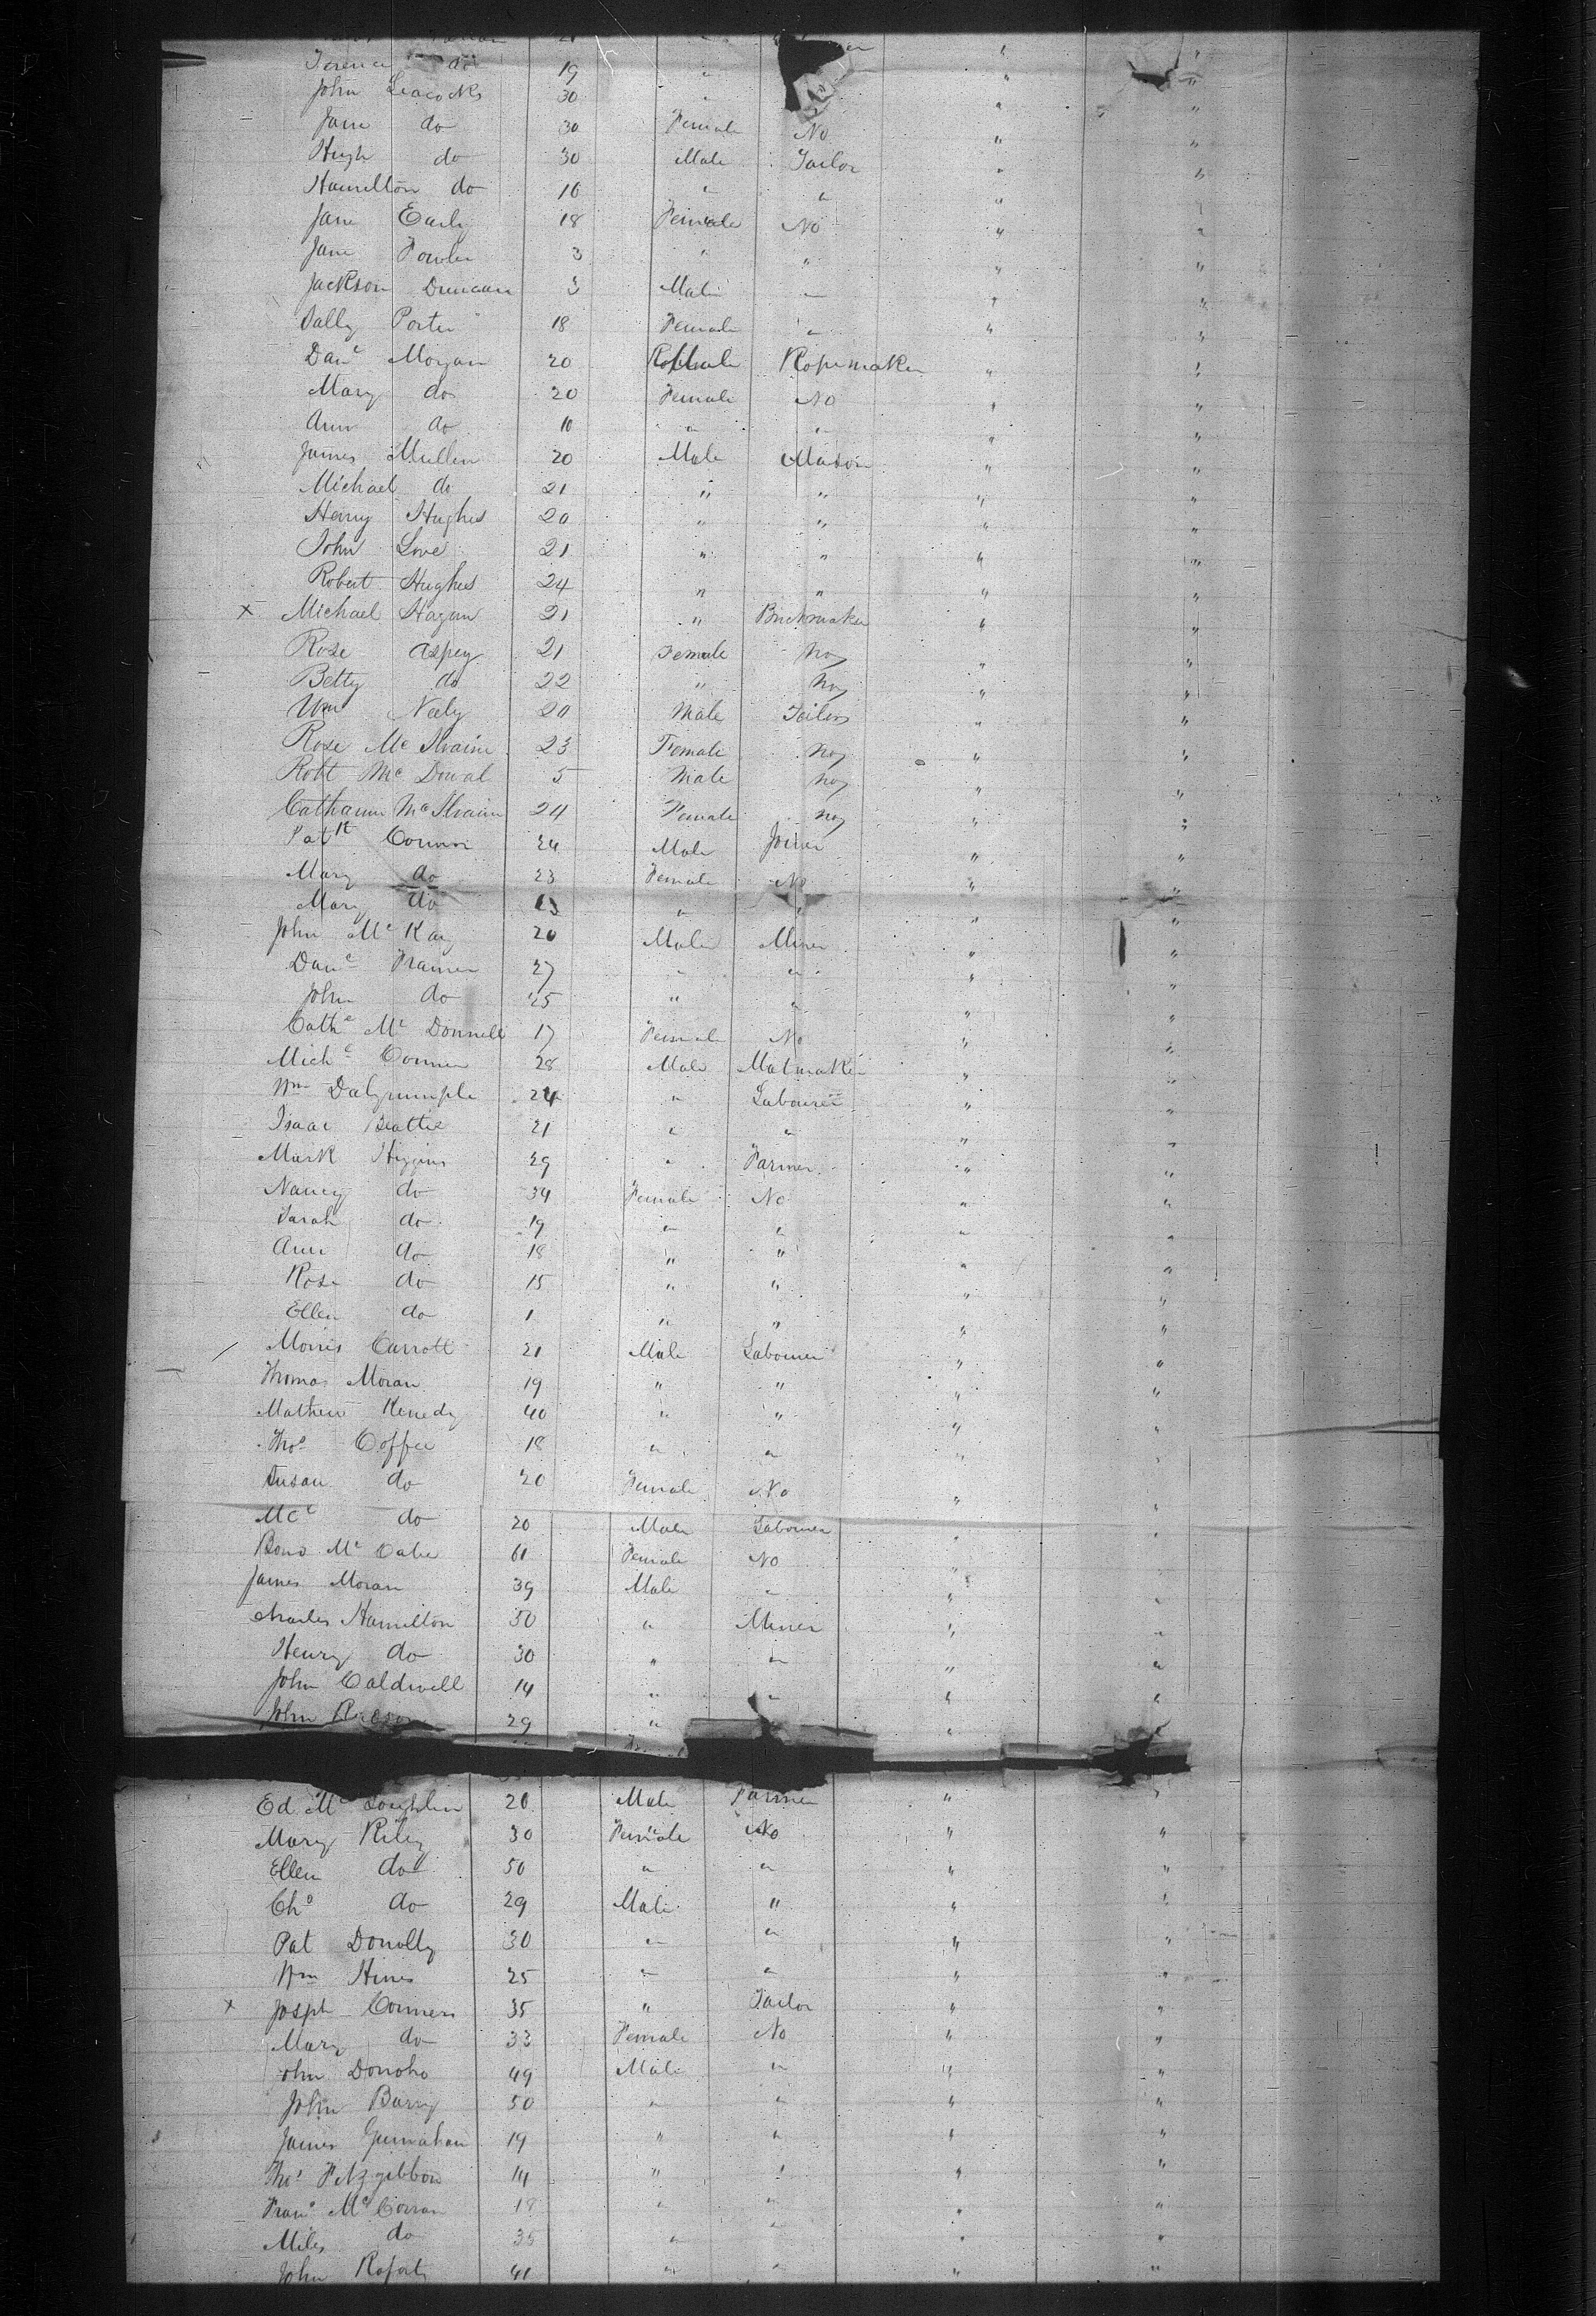 19 "
John Leacocks 30 " " "
Jane do 30 Female No " "
Hugh do 30 Male Tailor " "
Hamilton do 10 " " " "
Jane Early 18 Female No " "
Jane Fowler 3 " " " "
Jackson Duncan 3 Male " " "
Sally Porter 18 Female " " "
Danl Morgan 20 Ropemaker " "
Mary do 20 Female No " "
Ann do 10 " " " "
James Mullen 20 Male Mason " "
Michael do 21 " " " "
Henry Hughes 20 " " " "
John Love 21 " " " "
Robert Hughes 24 " " " "
x Michael Hagan 21 " Brickmaker " "
Rose Aspey 21 Female No " "
Betty do 22 " No " "
Wm Neely 20 Male Tailor " "
Rose Mc Ilvaine 23 Female No " "
Robt Mc Dowal 5 Male No " "
Catharine Mc Ilvaine 24 Female No " "
Patk Connor 24 Male Joiner " "
Mary do 23 Female No " "
Mary do " " " "
John Mc Kay 20 Male Miner " "
Danl 27 " " " "
John do 25 " " " "
Cathe Mc Donnell 17 Female No " "
Michl Conner 28 Male Matmaker " "
Wm Dalyrumple 24 " Labourer " "
Isaac Beattie 21 " " " "
Mark Higgins 29 " Farmer " "
Nancy do 34 Female No " "
Sarah do 19 " " " "
Ann do 18 " " " "
Rose do 15 " " " "
Ellen do 1 " " " "
Morris Carroll 21 Male Labourer " "
Thomas Moran 19 " " " "
Mathew Kenedy 40 " " " "
Thos Coffee 18 " " " "
Susan do 20 Female No " "
do 20 Male Labourer " "
Mc Cabe 61 Female No "
James Moran 39 Male " " "
Charles Hamilton 50 " Miner " "
Henry do 30 " " " "
John Caldwell 14 " " " "
John 29 " " "
Ed. Mc Loughlin 20 Male Farmer " "
Mary Riley 30 Female No " "
Ellen do 50 " " " "
Chs do 29 Male " " "
Pat Donolly 30 " " " "
Wm Hines 25 " " " "
x Josph Conners 35 " Tailor " "
Mary do 33 Female No " "
John Donoho 49 Male " " "
John Barry 50 " " " "
James 19 " " " "
Thos Fitzgibbon 14 " " " "
Frans Mc Corran 18 " " " "
Miles do 35 " " " "
John 41 " " " "